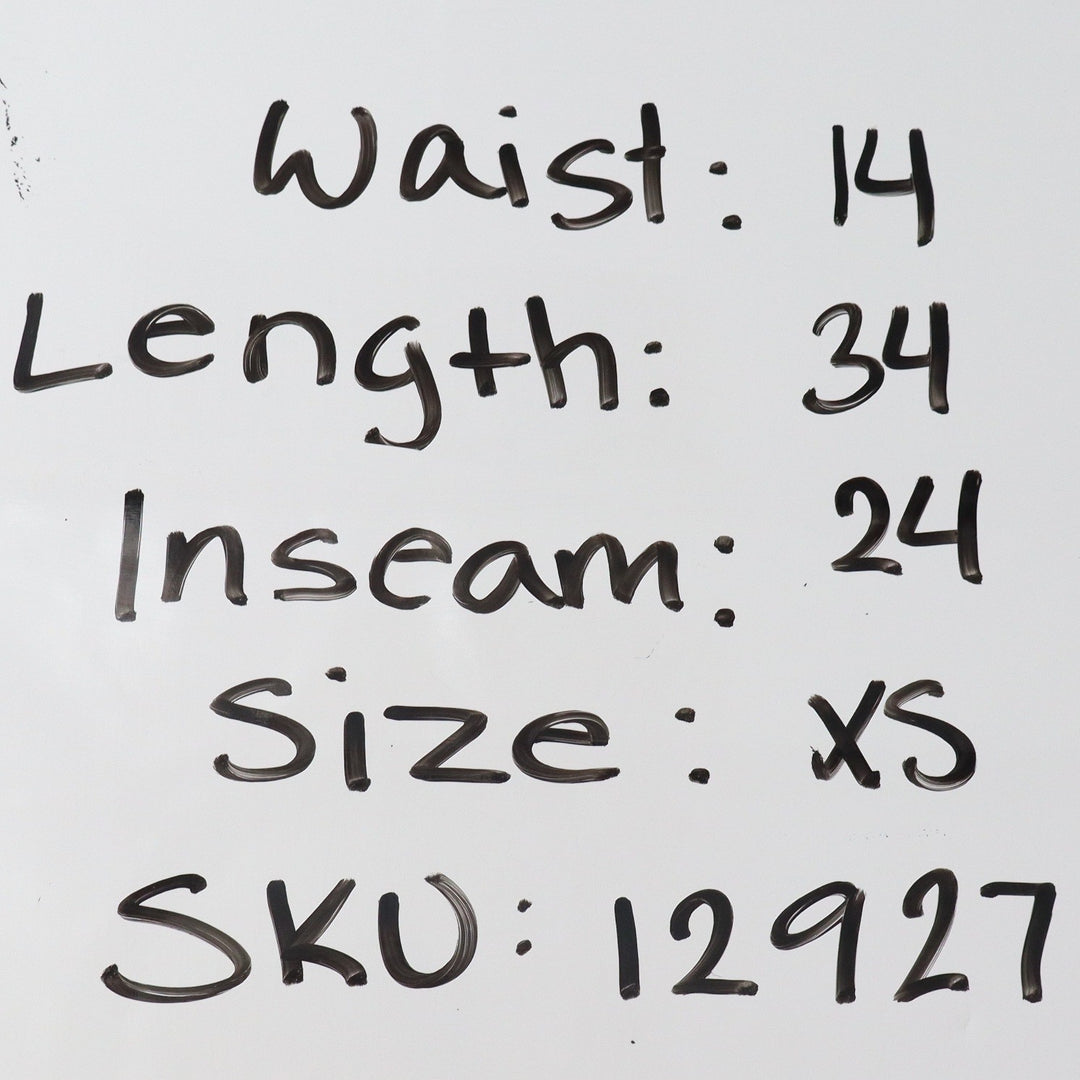 Waist: 14
Length: 34
Inseam: 24
Size: XS
SKU: 12927